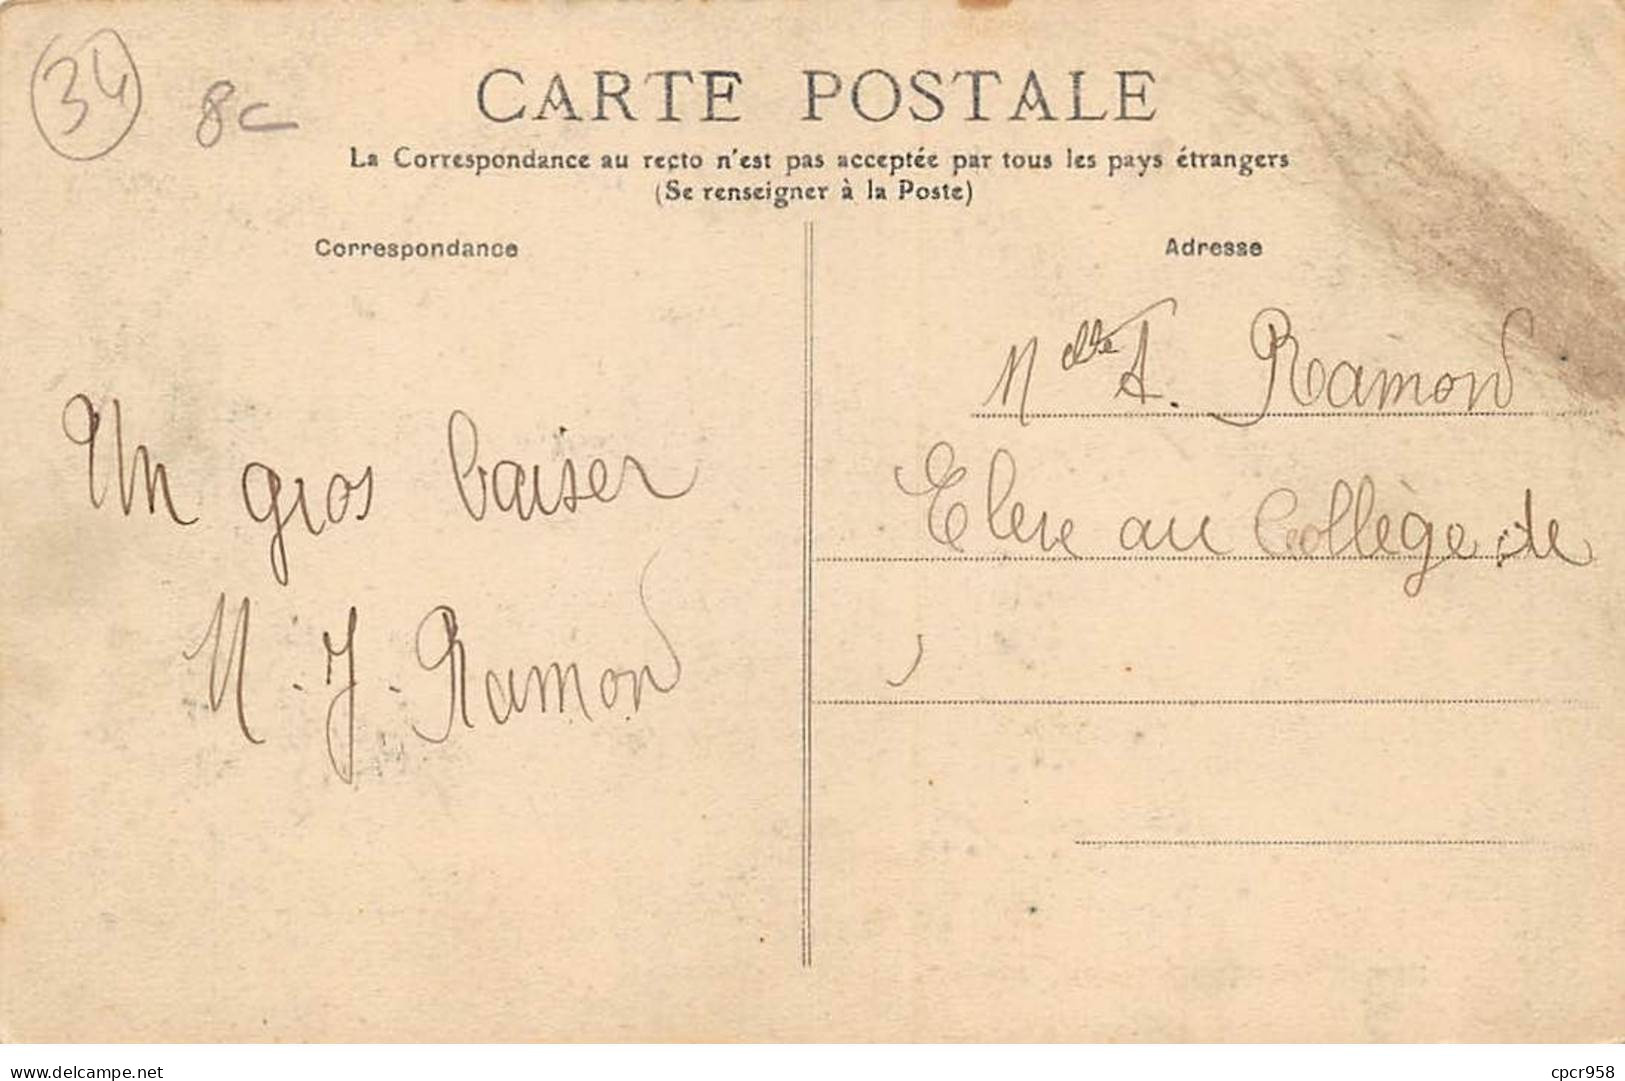 34
8c
CARTE POSTALE
La Correspondance au recto n'est pas acceptée par tous les pays étrangers
(Se renseigner à la Poste)
Correspondance
Un gros baiser
M. J. Ramond
Adresse
Mdlle A. Ramond
Eleve au Collège de
www.delcampe.net
cpcr958